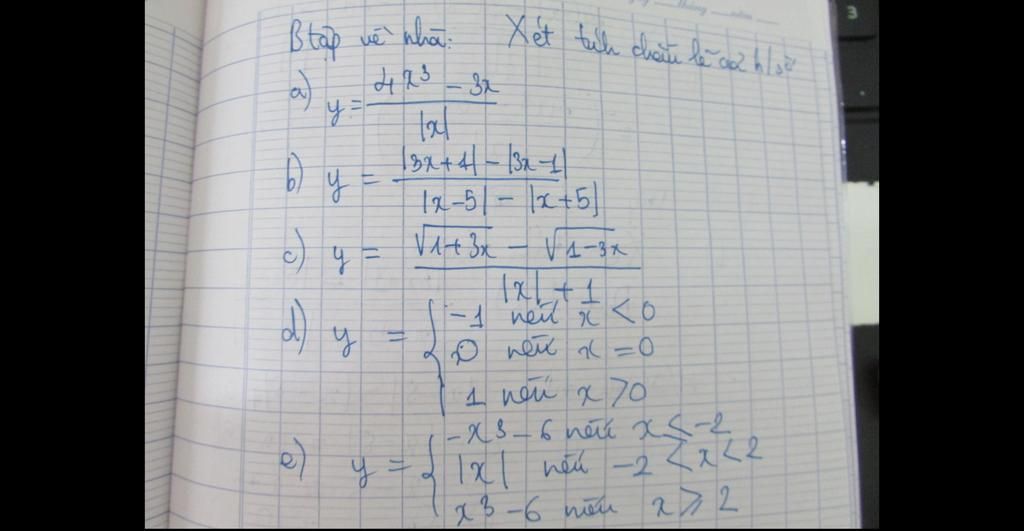 Btập về nhà: Xét tính chẵn lẻ của h/số
a) y = \frac{4x^3 - 3x}{|x|}
b) y = \frac{|3x+1| - |3x-1|}{|x-5| - |x+5|}
c) y = \frac{\sqrt{1+3x} - \sqrt{1-3x}}{|x| + 1}
d) y = { -1 nếu x < 0
0 nếu x = 0
1 nếu x > 0
e) y = { -x^3 - 6 nếu x ≤ -2
|x| nếu -2 < x < 2
x^3 - 6 nếu x ≥ 2